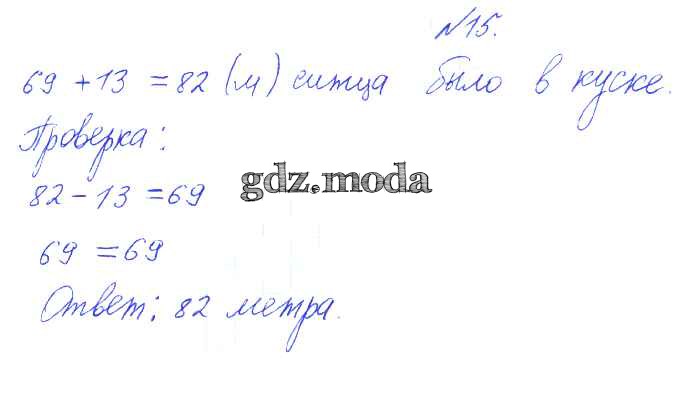 №15.
69 + 13 = 82 (м) ситца было в куске.
Проверка:
82 - 13 = 69
gdz.moda
69 = 69
Ответ: 82 метра.